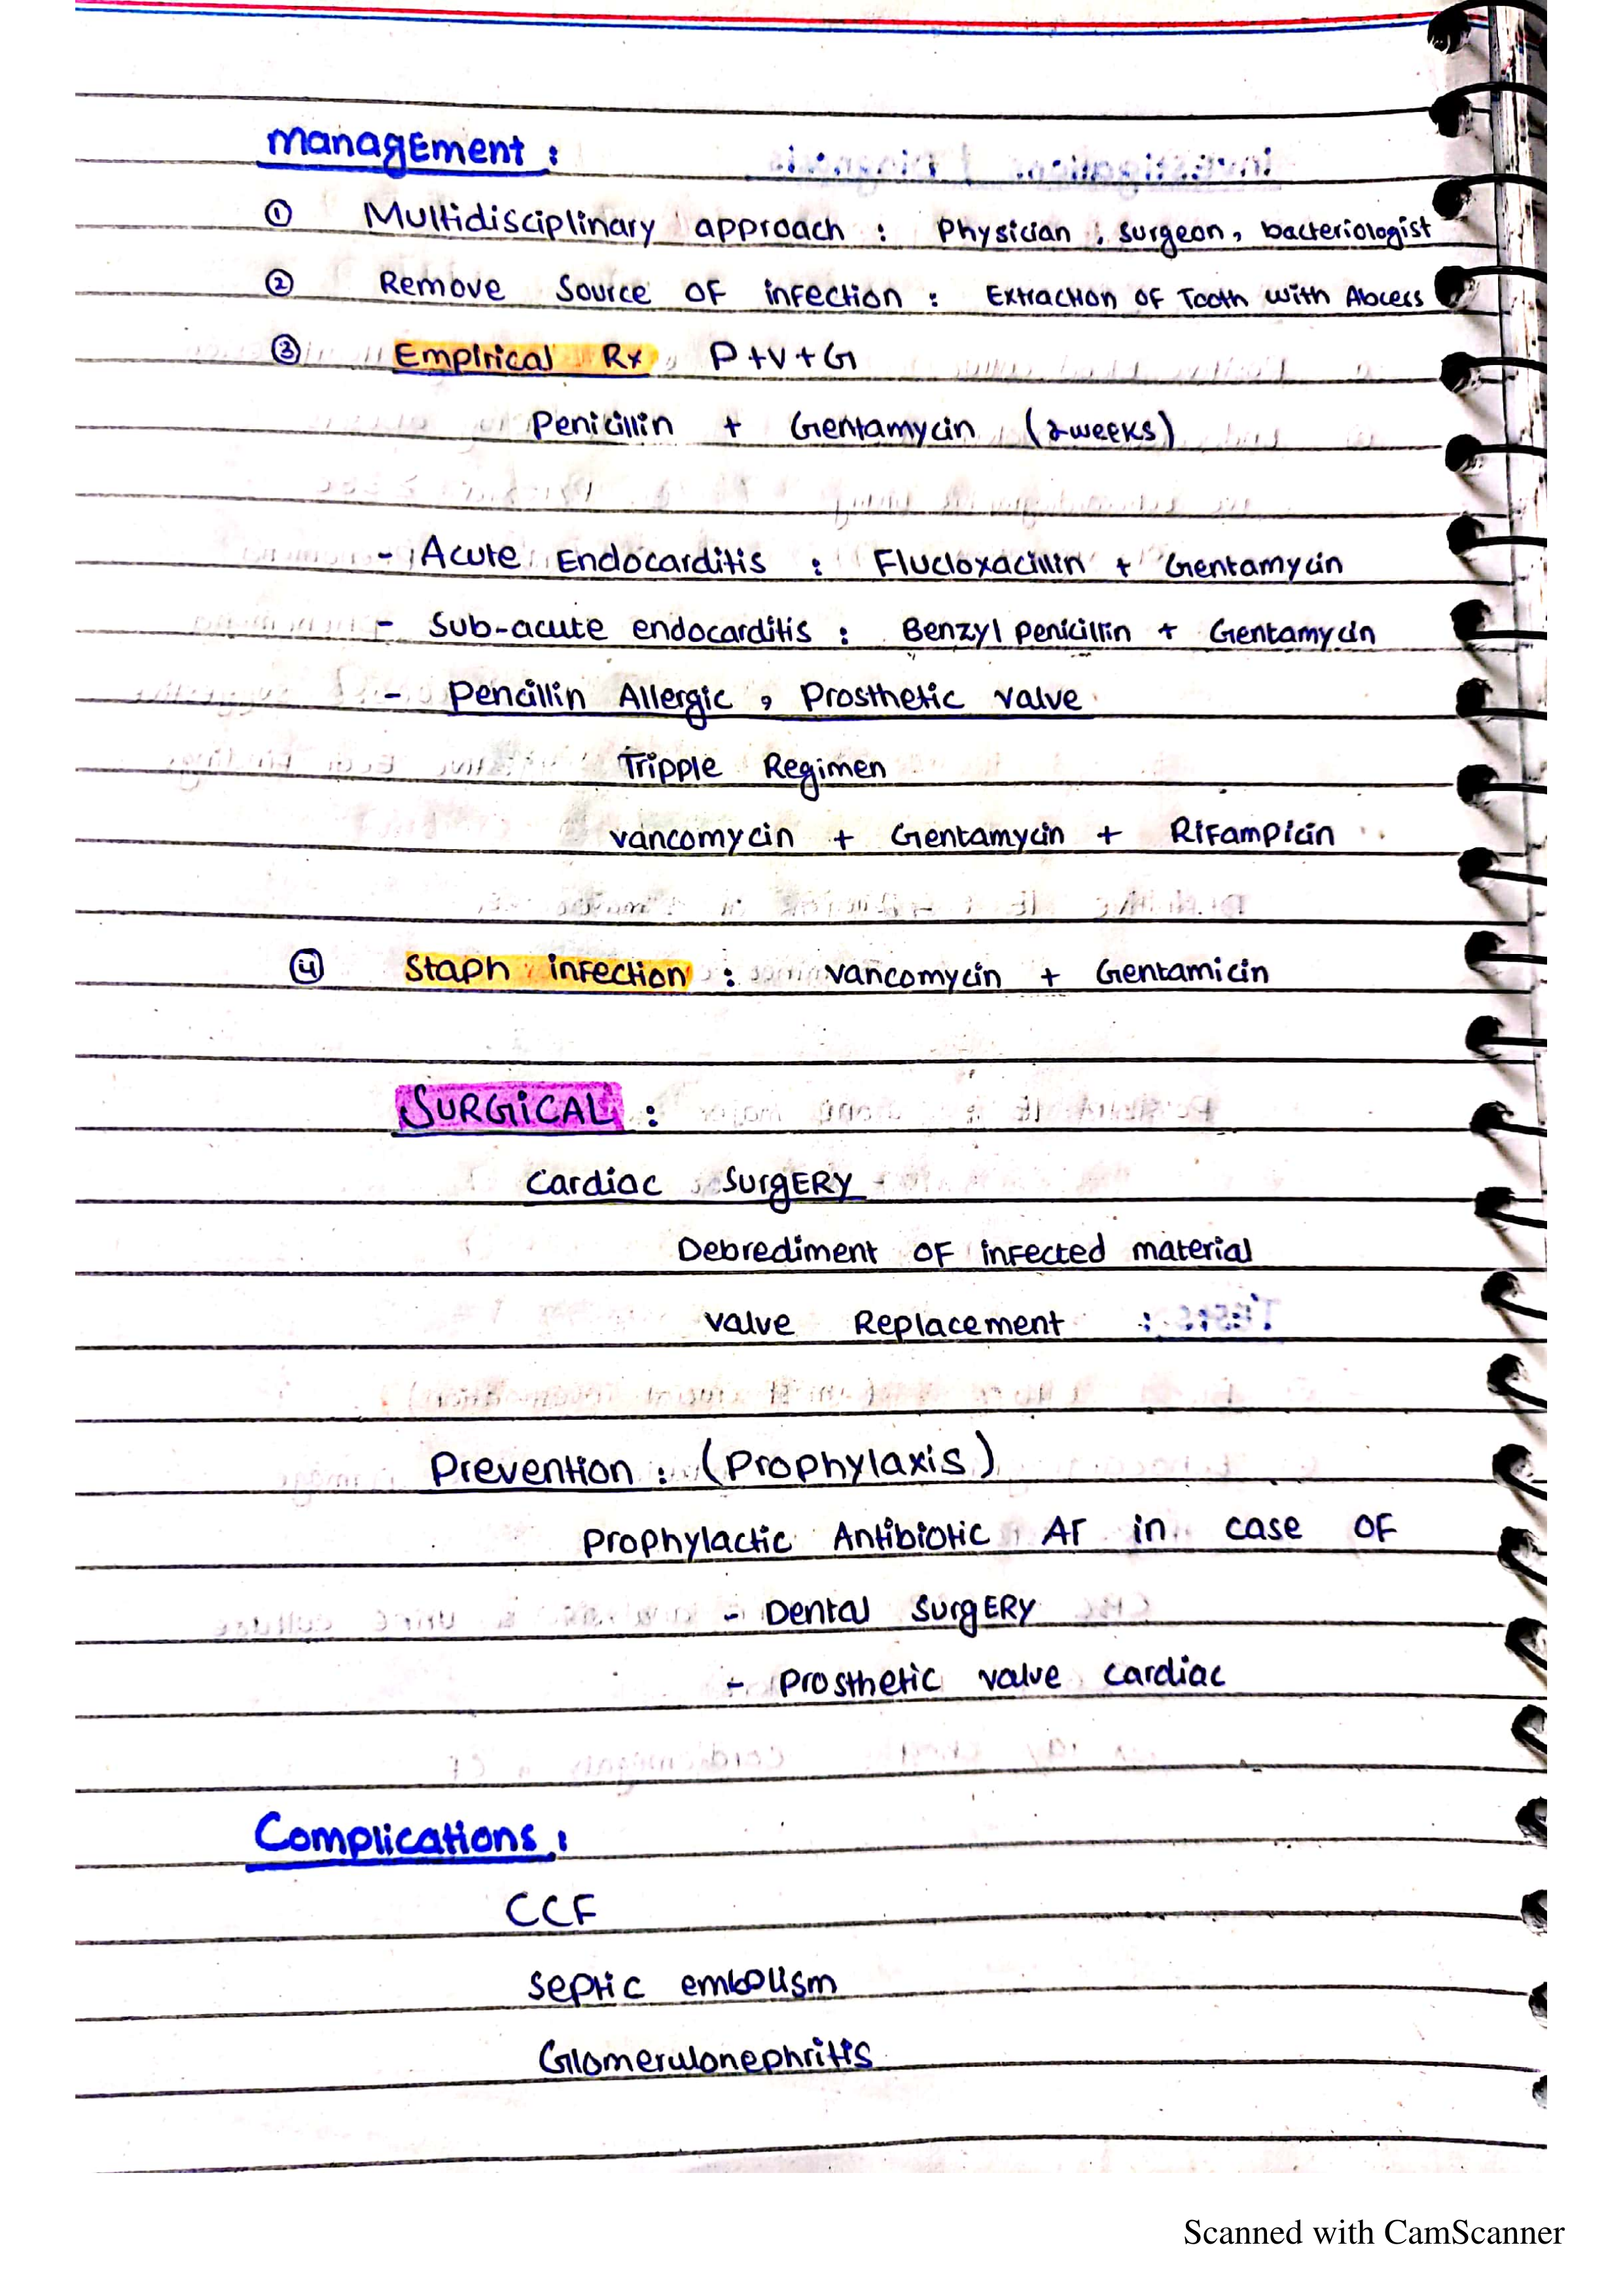 management :
① Multidisciplinary approach : Physician , surgeon, bacteriologist
② Remove Source OF infection : Extraction OF Tooth with Abcess
③ Empirical Rx , P+V+G
Penicillin + Gentamycin (2weeks)
- Acute Endocarditis : Flucloxacillin + Gentamycin
- Sub-acute endocarditis : Benzyl penicillin + Gentamycin
- Pencillin Allergic , Prosthetic valve
Tripple Regimen
vancomycin + Gentamycin + Rifampicin
④ Staph infection : vancomycin + Gentamicin
SURGICAL :
Cardiac SurgERY
Debrediment OF infected material
valve Replacement
Prevention : (Prophylaxis)
Prophylactic Antibiotic AT in case OF
- Dental SurgERY
- Prosthetic valve cardiac
Complications :
CCF
septic embolism
Glomerulonephritis
Scanned with CamScanner